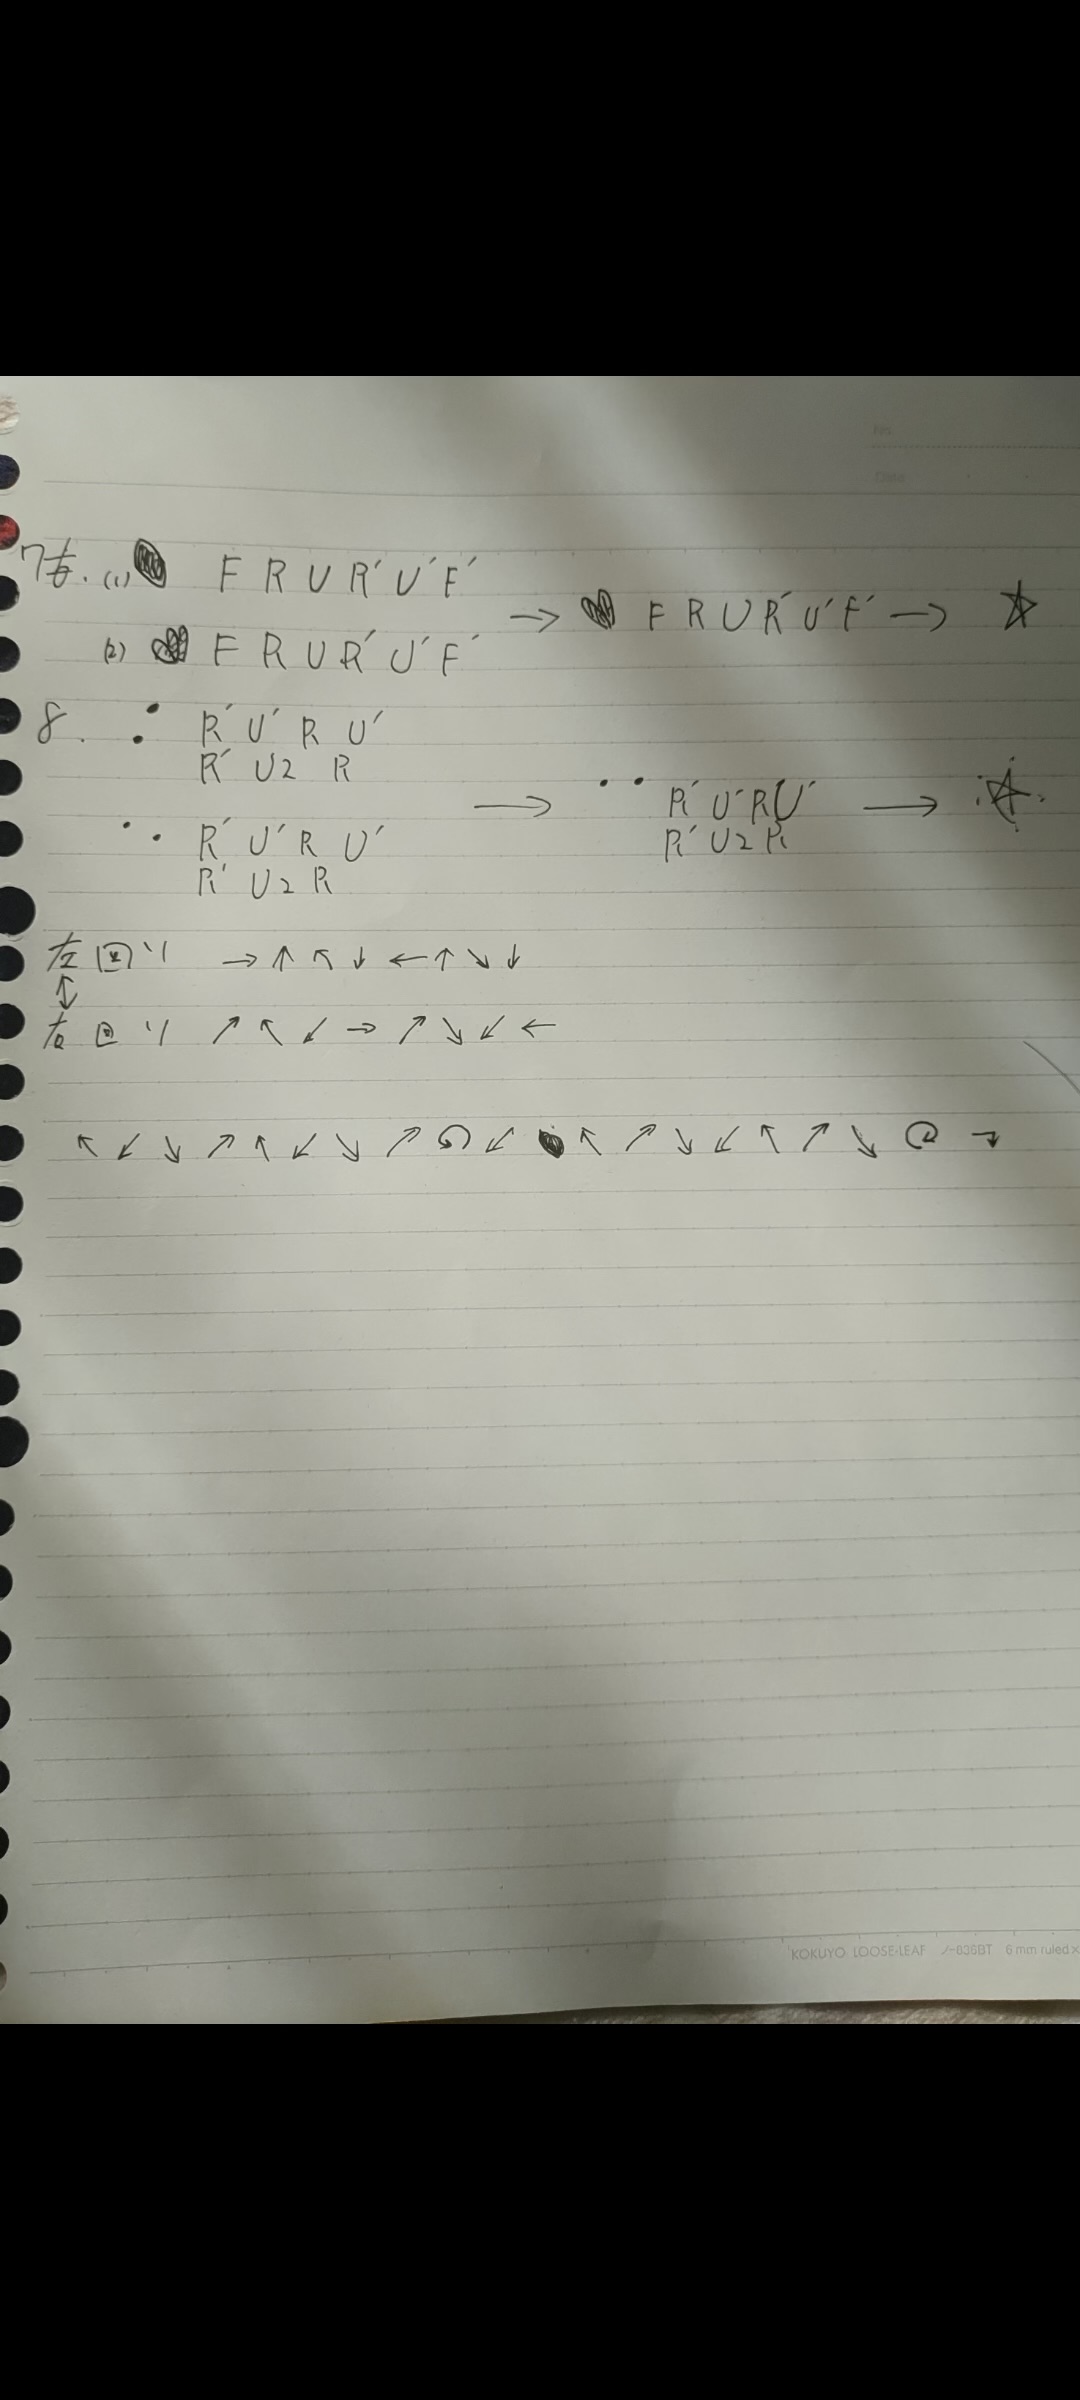 No.
Date
(1) F R U R′ U′ F′
→ F R U R′ U′ F′ → ☆
(2) F R U R′ U′ F′
8. : R′ U′ R U′
R′ U2 R
→ ・・ R′ U′ R U′ → ☆
R′ U2 R
・・ R′ U′ R U′
R′ U2 R
左回り → ↑ ↖ ↓ ← ↑ ↘ ↓
↕
右回り ↗ ↖ ↙ → ↗ ↘ ↙ ←
↖ ↙ ↘ ↗ ↖ ↙ ↘ ↗ ↺ ↙ ↖ ↗ ↘ ↙ ↖ ↗ ↘ ↻
KOKUYO LOOSE-LEAF ノ-836BT 6 mm ruled×